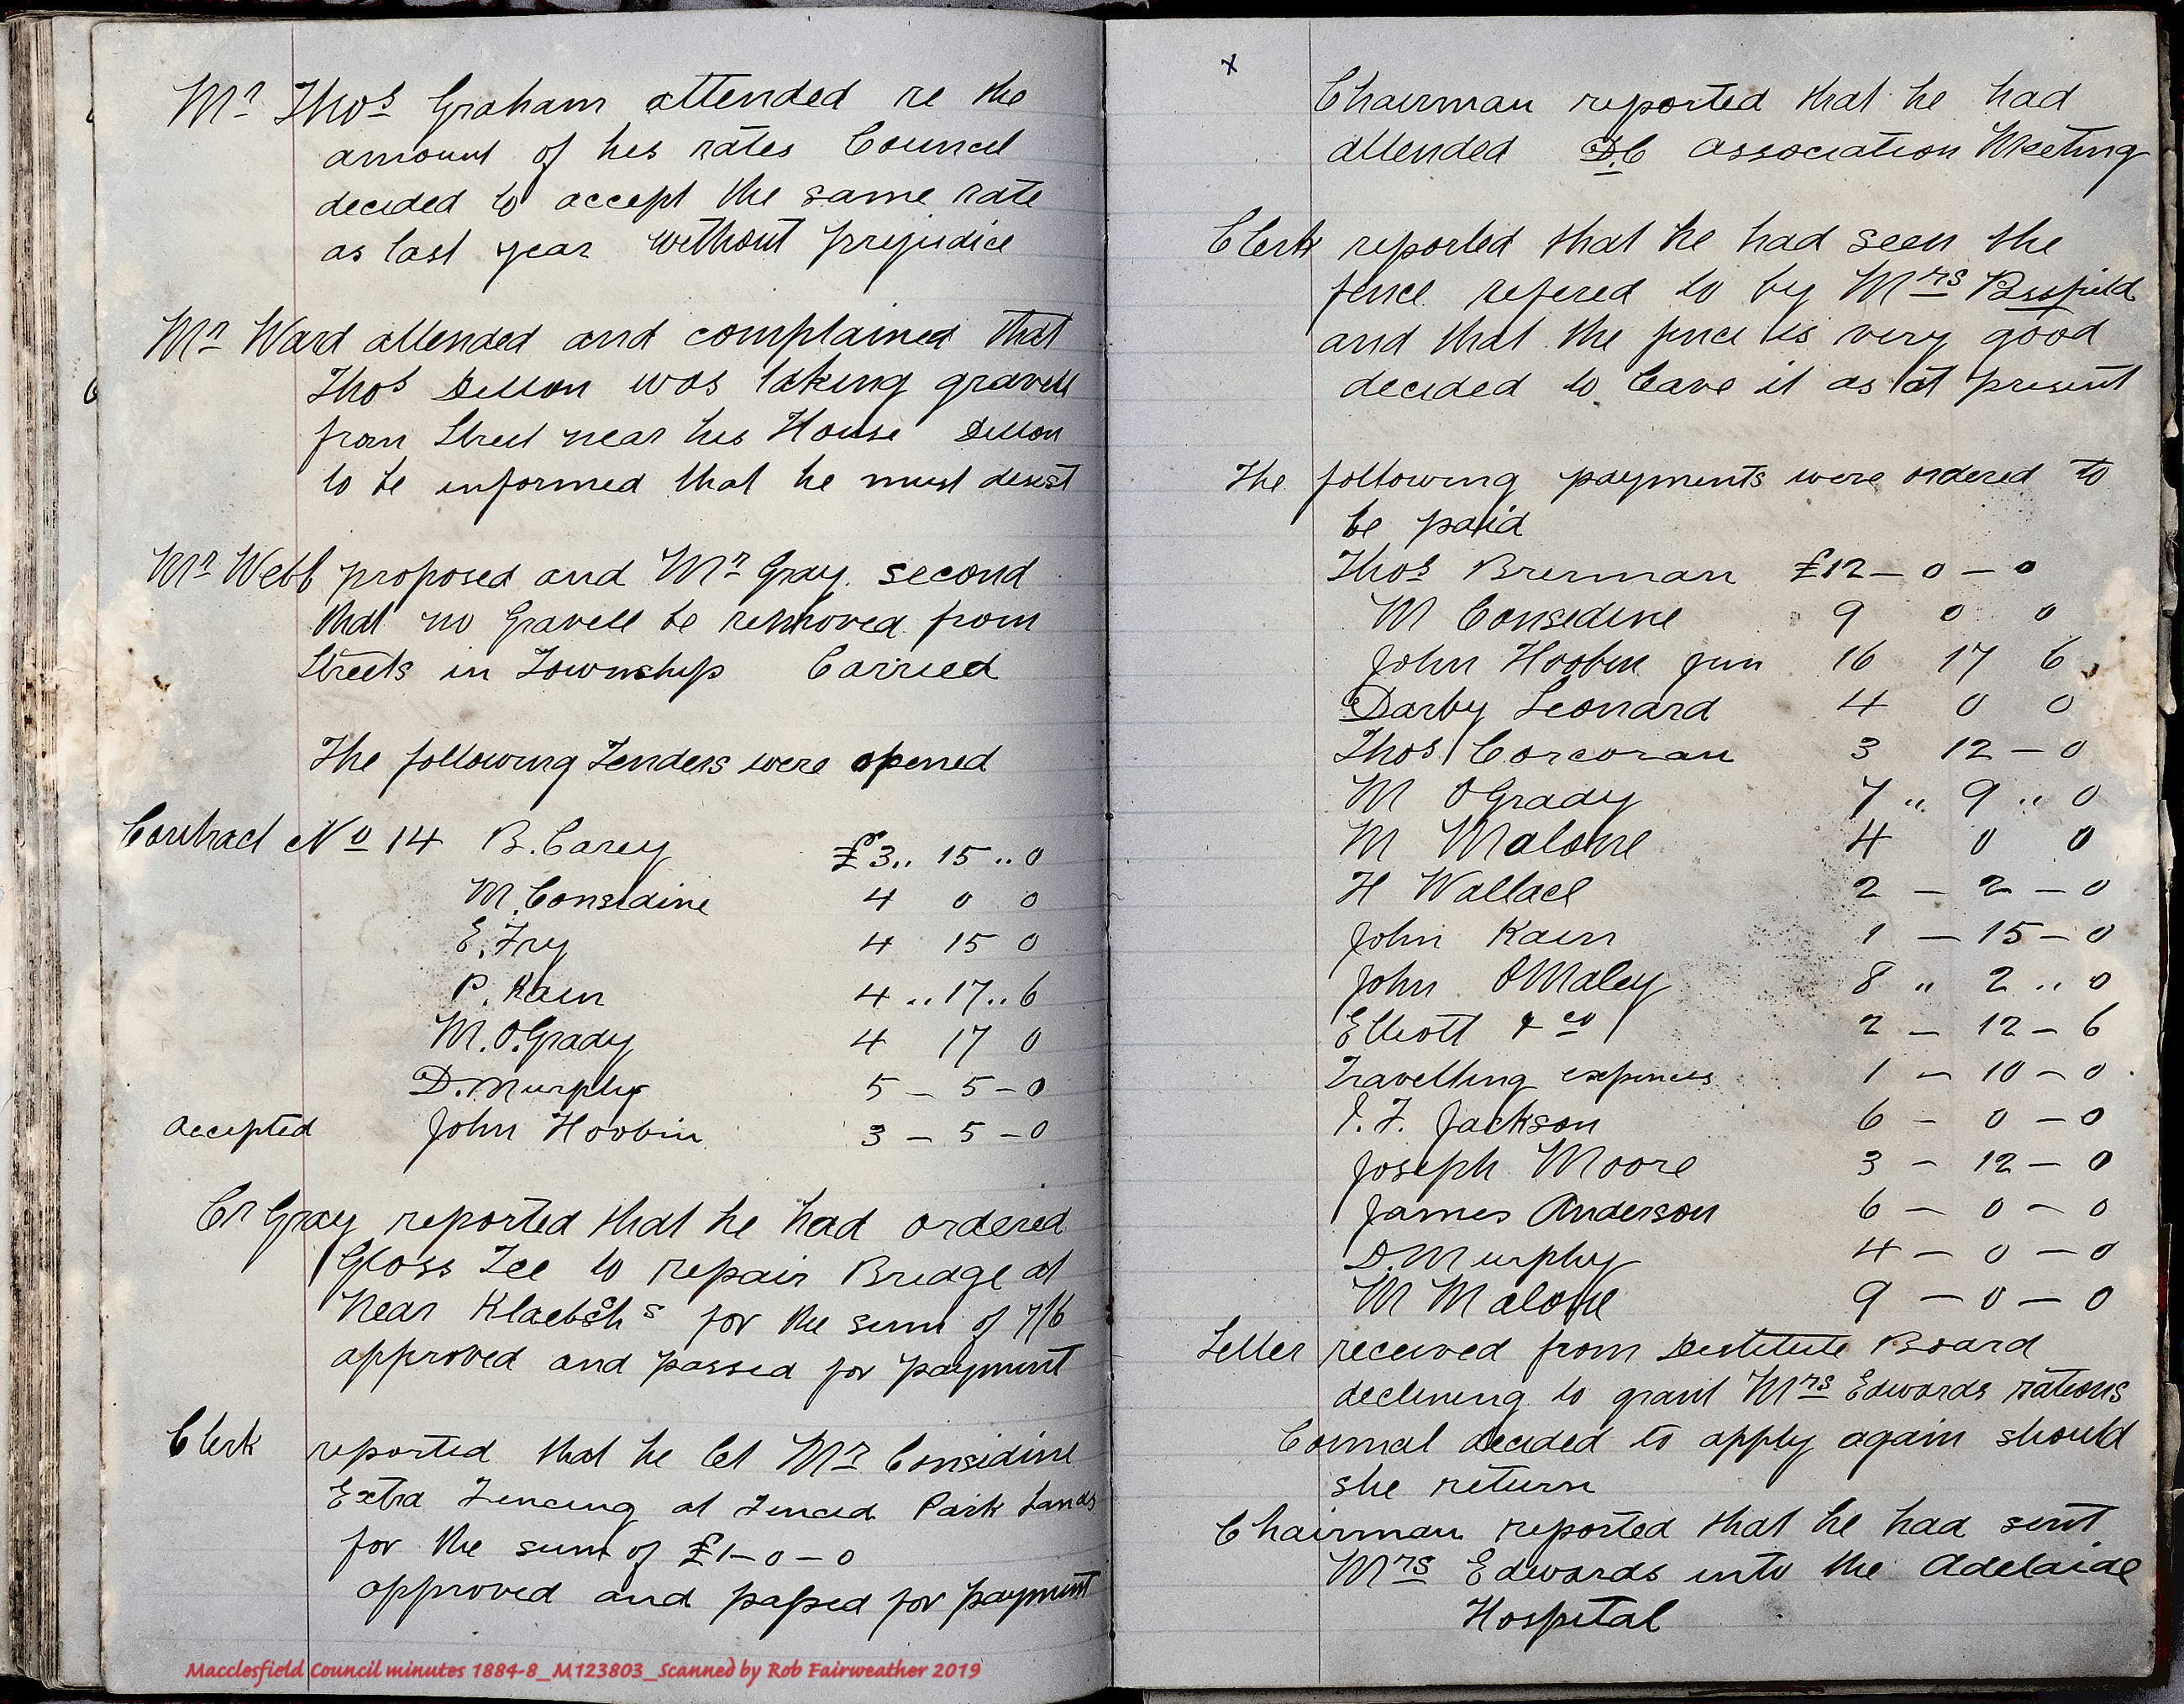 Mr Thos Graham attended re the
amount of his rates Council
decided to accept the same rate
as last year without prejudice
Mr Ward attended and complained that
Thos Dillon was taking gravell
from Street near his House Dillon
to be informed that he must desist
Mr Webb proposed and Mr Gray second
that no Gravell be removed from
Streets in Township Carried
The following Tenders were opened
Contract No 14 B. Carey £3..15..0
M. Considine 4 0 0
E. Fry 4 15 0
P. Kain 4..17..6
M. O.Grady 4 17 0
D. Murphy 5 – 5 – 0
accepted John Hoobin 3 – 5 – 0
Cr Gray reported that he had ordered
Gloss Tee to repair Bridge at
Near Klaebsch s for the sum of 7/6
approved and passed for payment
Clerk reported that he let Mr Considine
Extra Fencing at Fenced Park Lands
for the sum of £1 – 0 – 0
approved and passed for payment
Macclesfield Council minutes 1884-8_M123803_Scanned by Rob Fairweather 2019
x
Chairman reported that he had
attended D.C association Meeting
Clerk reported that he had seen the
fence refered to by Mrs
and that the fence is very good
decided to leave it as at present
The following payments were ordered to
be paid
Thos Brerman £12 – 0 – 0
M Considine 9 0 0
John Hoobin jun 16 17 6
Darby Leonard 4 0 0
Thos Corcoran 3 12 – 0
M OGrady 7 .. 9 .. 0
M Malone 4 0 0
H Wallace 2 – 2 – 0
John Kain 1 – 15 – 0
John OMaley 8 .. 2 .. 0
Elliott & co 2 – 12 – 6
Travelling expences 1 – 10 – 0
J. F. Jackson 6 – 0 – 0
Joseph Moore 3 – 12 – 0
James Anderson 6 – 0 – 0
D. Murphy 4 – 0 – 0
M Malone 9 – 0 – 0
Letter received from Destitute Board
declining to grant Mrs Edwards rations
Council decided to apply again should
she return
Chairman reported that he had sent
Mrs Edwards into the Adelaide
Hospital